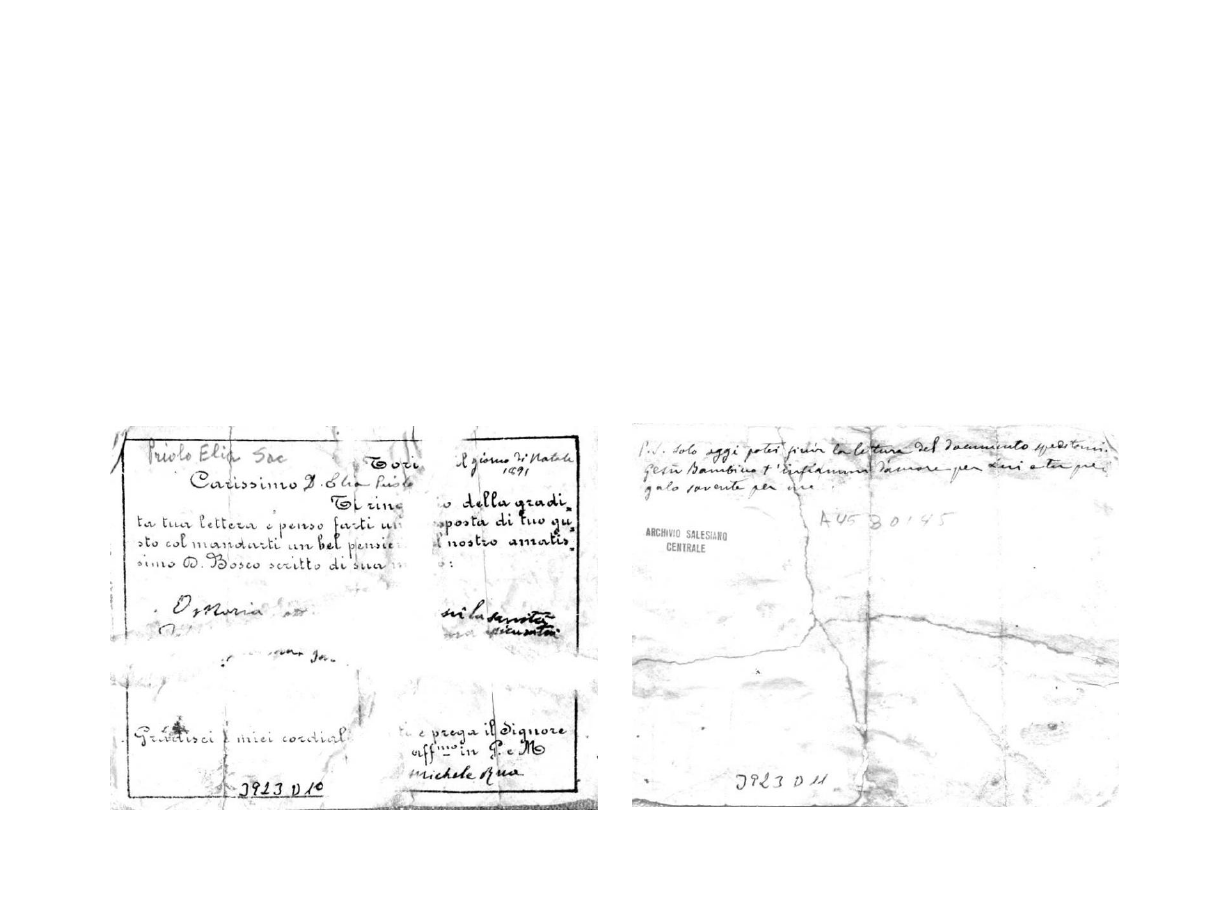 Priolo Elia Sac
Tori il giorno di Natale
1891
Carissimo D. Elia Priolo
Ti ring io della gradi„
ta tua lettera e penso farti un sposta di tuo gu„
sto col mandarti un bel pensier l nostro amatis„
simo D. Bosco scritto di sua o:
O Maria
sci la
Gradisci i miei cordial ti e prega il Signore
aff.mo in G. e M
Michele Rua
J923 D 10
P.S. Solo oggi potei finir la lettura del documento speditomi.
Gesù Bambino t'infiammi d'amore per Lui e tu pre
galo sovente per me.
A45 80145
ARCHIVIO SALESIANO
CENTRALE
J923 D 11